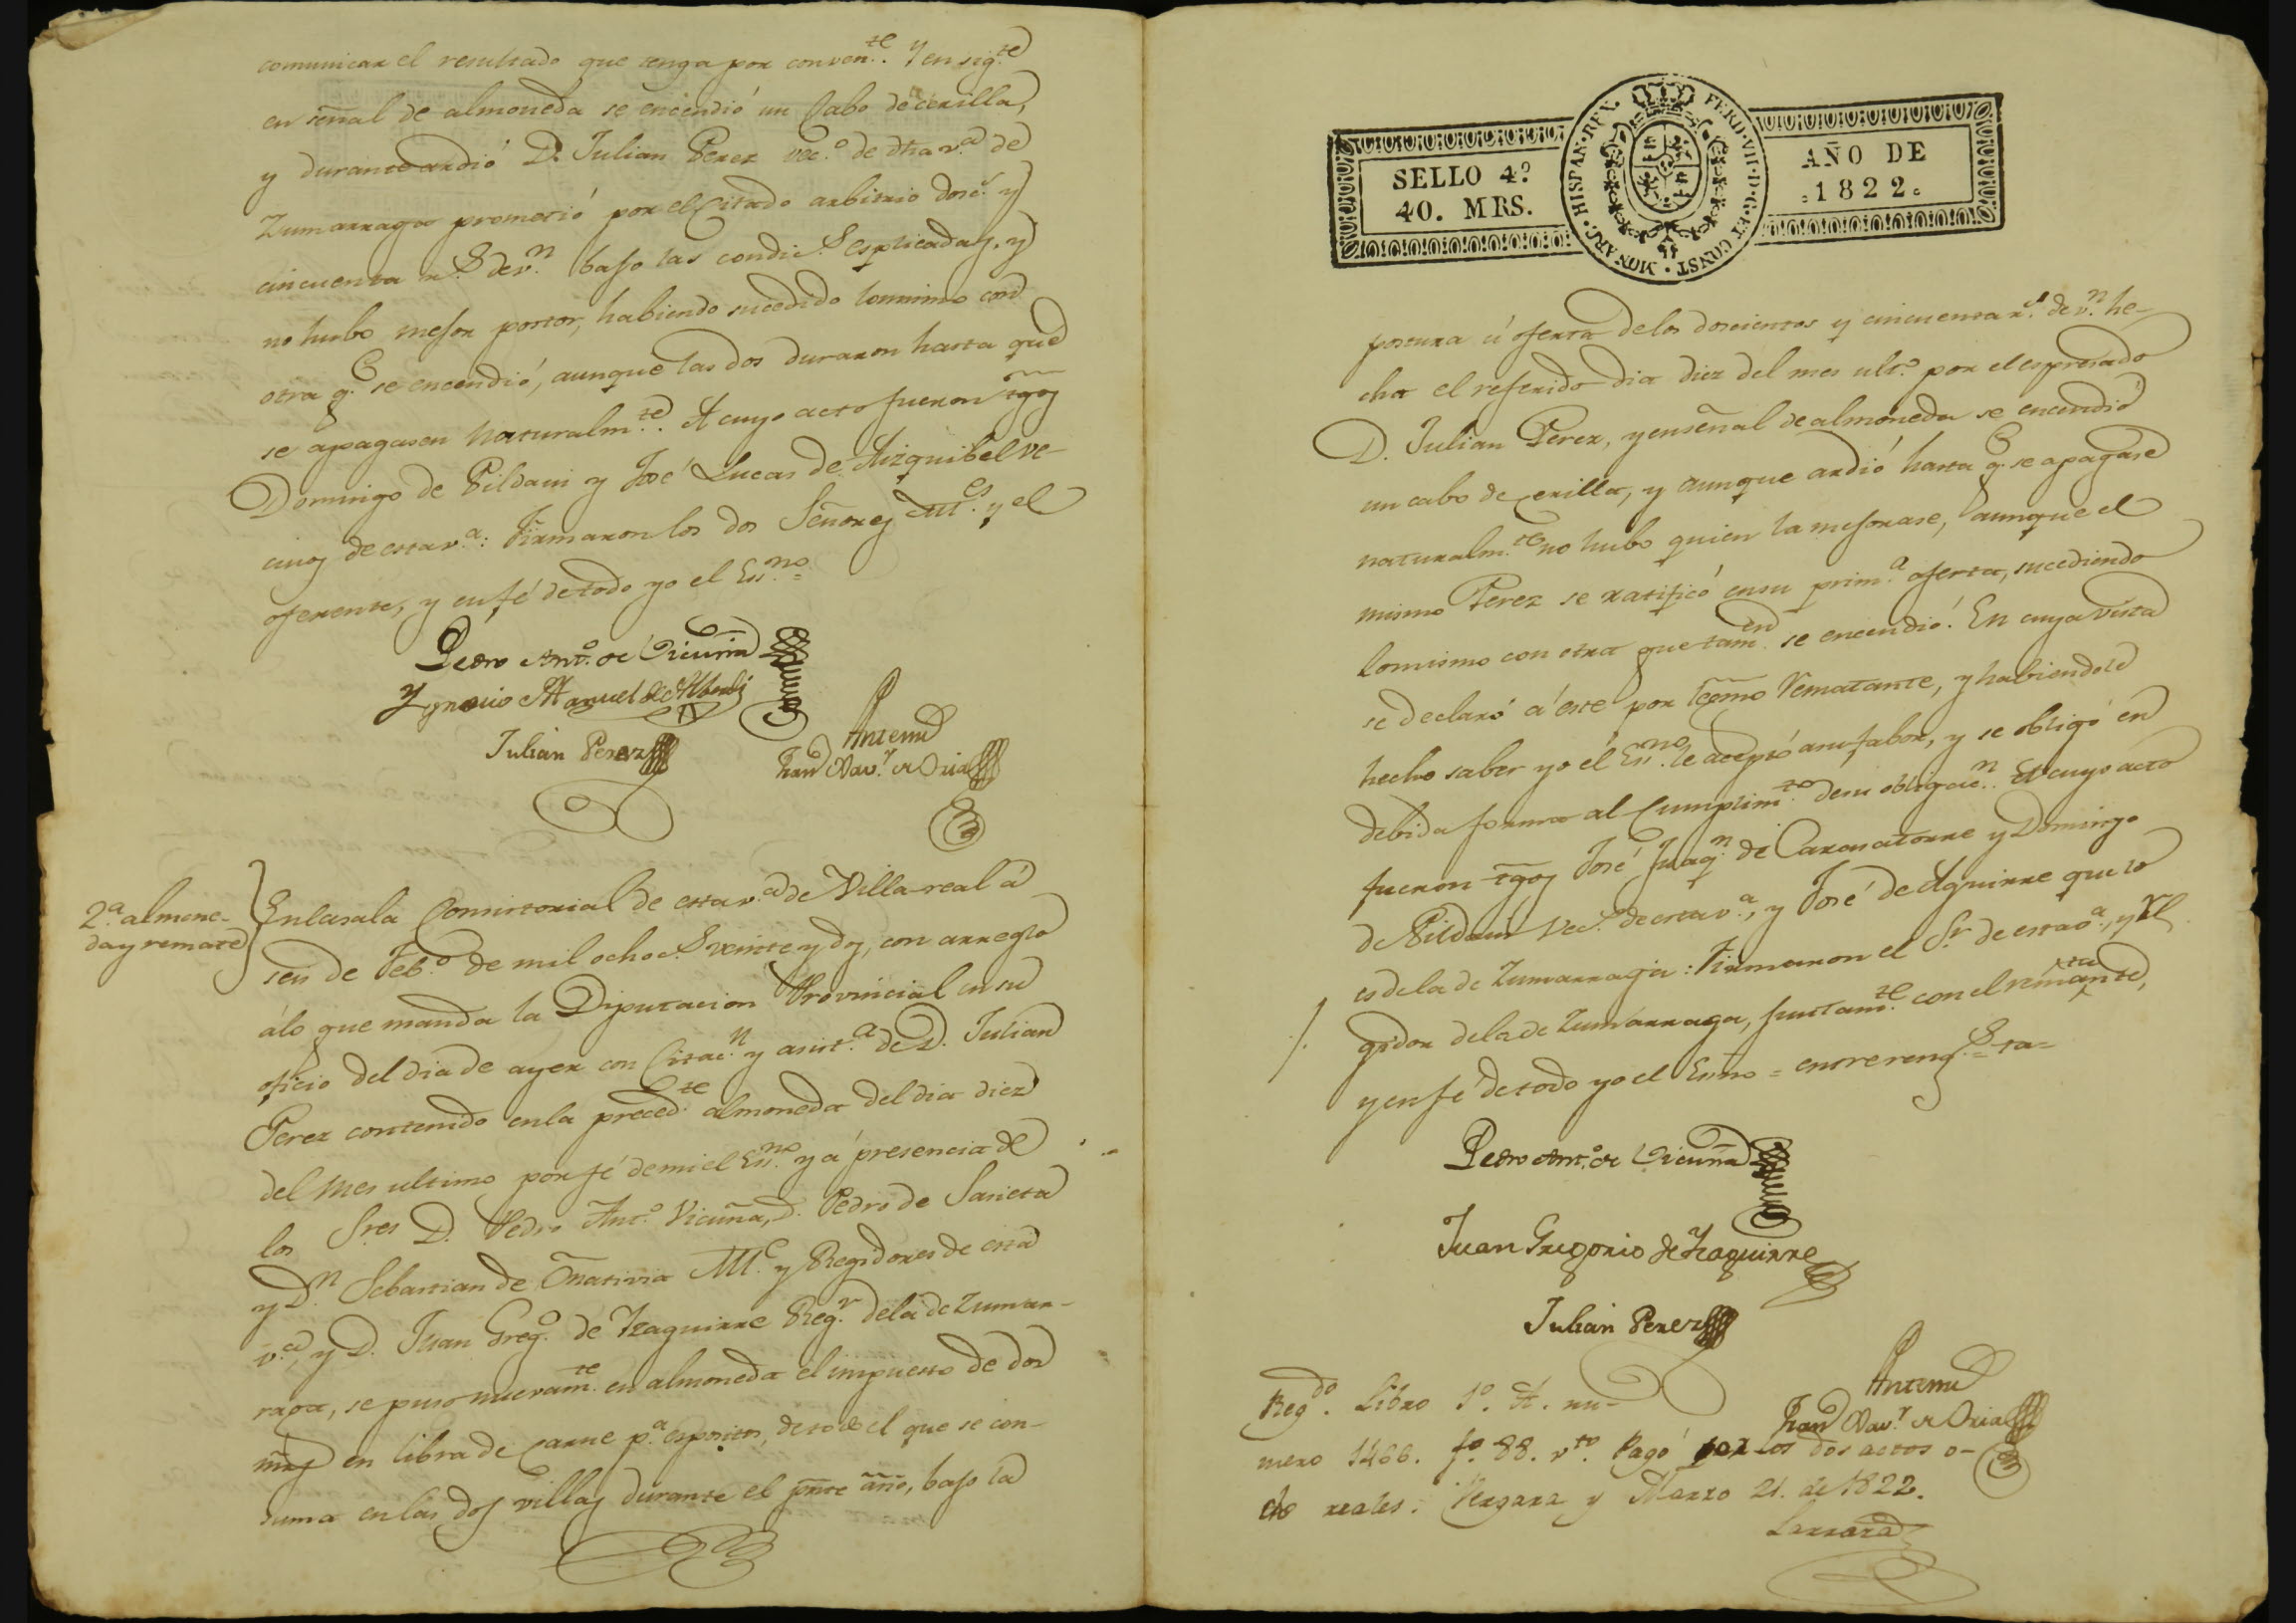 comunicar el resultado que tenga por conven.te. Y en sig.te
en señal de almoneda se encendió un Cabo de cerilla,
y durante ardió D. Julian Perez vec.o de dha v.a de
Zumarraga prometió por el Citado arbitrio dosc.s y
cincuenta r.s de v.n bajo las condic.s esplicadas, y
no hubo mejor postor, habiendo sucedido lo mismo con
otra q.e se encendió, aunque las dos duraron hasta que
se apagasen naturalm.te. A cuyo acto fueron tgos
Domingo de Pildain y José Lucas de Aizquibel ve-
cinos de esta v.a: Firmaron los dos Señores All.es y el
oferente, y en fé de todo yo el Es.no=
Pedro Ant.o de Vicuña
Ygnacio Manuel de Alberdi
Julian Perez
Antemi
Fran.co Xav.r de Oria
2.a almone-
da y remate
En la sala Consistorial de esta v.a de Villa-real á
seis de Feb.o de mil ochoc.s veinte y dos, con arreglo
á lo que manda la Diputacion Provincial en su
oficio del dia de ayer con Citac.n y asist.a de D. Julian
Perez contenido en la preced.te almoneda del dia diez
del mes ultimo por fé de mi el Es.no y á presencia de
los S.res D. Pedro Ant.o Vicuña, D. Pedro de Sarieta
y D.n Sebastian de Oñativia All.e y Regidores de esta
v.a, y D. Juan Greg.o de Yzaguirre Reg.r de la de Zumar-
raga, se puso nuevam.te en almoneda el impuesto de dos
mrs en libra de Carne p.a espositos, de todo el que se con-
suma en las dos villas durante el prnte año, bajo la
SELLO 4.o
40. MRS.
HISPAN. REX. FERD. VII. D. G. ET CONST. MONARC.
AÑO DE
1822.
postura ú oferta de los doscientos y cincuenta r.s de v.n he-
cha el referido dia diez del mes ult.o por el espresado
D. Julian Perez, y en señal de almoneda se encendió
un cabo de cerilla, y aunque ardió hasta q.e se apagase
naturalm.te no hubo quien la mejorase, aunque el
mismo Perez se ratificó en su prim.a oferta, sucediendo
lo mismo con otra que tam.en se encendió. En cuya vista
se declaró á este por legmo Rematante, y habiendole
hecho saber yo él Es.no le aceptó a su fabor, y se obligó en
debida forma al Cumplim.to de su obligac.n. A cuyo acto
fueron tgos José Juaq.n de Caronatorre y Domingo
de Pildain Vec.s de esta v.a, y José de Aguirre que lo
es de la de Zumarraga: Firmaron el S.r de esta v.a, y Re
gidor de la de Zumarraga, juntam.te con el remtante,
y en fé de todo yo el Esno = entrereng.s = ta=
Pedro Ant.o de Vicuña
Juan Gregorio de Yzaguirre
Julian Perez
Antemi
Fran.co Xav.r de Oria
Reg.do Libro 1.o A. nu-
mero 1466. f.o 88. v.to Pagó por los dos actos o-
cho reales. Vergara y Marzo 21. de 1822.